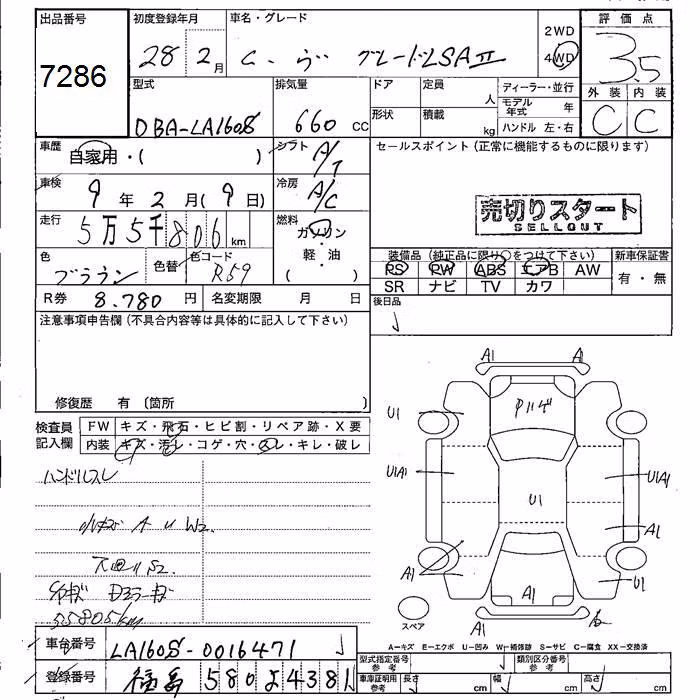 出品番号
7286
初度登録年月
28 2月
車名・グレード
グレードLSA II
2WD
4WD
評価点
3.5
外装 内装
C C
型式
DBA-LA160S
排気量
660 CC
ドア
形状
定員 人
積載 kg
ディーラー・並行
モデル年式 年
ハンドル 左・右
車歴
自家用・( )
シフト
A/T
セールスポイント(正常に機能するものに限ります)
売切りスタート
SELLOUT
車検
9年2月(9日)
冷房
A/C
走行
5万5千806 km
燃料
ガソリン
軽・油
( )
色
ブラウン
色替
色コード
R59
装備品(純正品に限り○をつけて下さい)
新車保証書
PS PW ABS エアB AW
SR ナビ TV カワ
有・無
R券 8.780円
名変期限 月 日
後日品
注意事項申告欄(不具合内容等は具体的に記入して下さい)
修復歴 有 〔箇所 〕
検査員記入欄
FW キズ・飛石・ヒビ割・リペア跡・X要
内装 キズ・汚レ・コゲ・穴・スレ・キレ・破レ
ハンドルスレ
小キズ A U W2
55805km
A1 A1
U1
U1A1
U1
U1A1
A1
A1
U1
A1
A1
スペア
A=キズ E=エクボ U=凹み W=補修跡 S=サビ C=腐食 XX=交換済
車台番号
LA160S-0016471
登録番号
福島 580 よ 4381
型式指定番号 参考
類別区分番号 参考
車庫証明用 参考
長さ cm
幅 cm
高さ cm